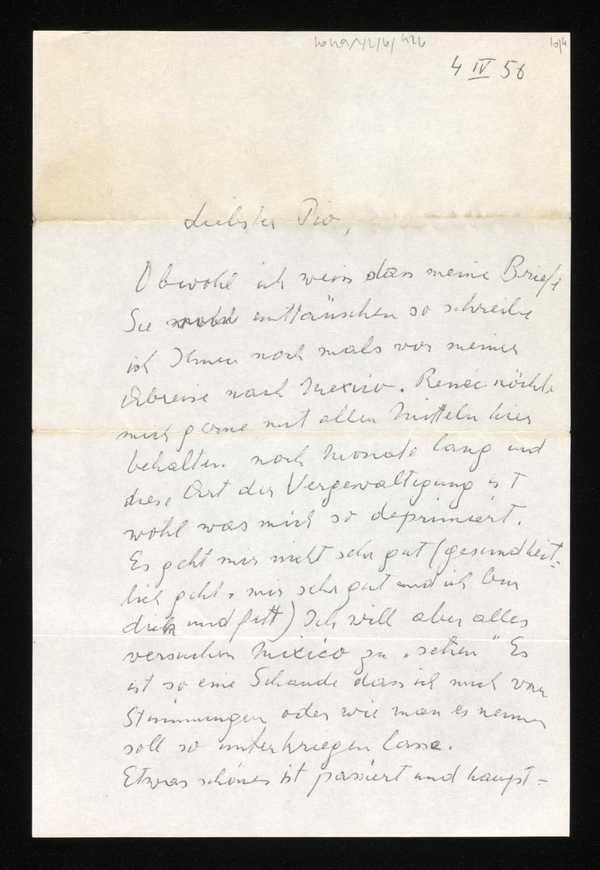 4 IV 56
Liebster Pio,
Obwohl ich weis dass meine Briefe
Sie enttäuschen so schreibe
ich Ihnen noch mals vor meiner
Abreise nach Mexico. Renée möchte
mich gerne mit allen Mitteln hier
behalten. noch Monate lang und
diese Art der Vergewaltigung ist
wohl was mich so deprimiert.
Es geht mir nicht sehr gut (gesundheit-
lich geht's mir sehr gut und ich bin
dick und fett) Ich will aber alles
versuchen Mexico zu „sehen" Es
ist so eine Schande dass ich mich von
Stimmungen oder wie man es nennen
soll so unterkriegen lasse.
Etwas schönes ist passiert und haupt-